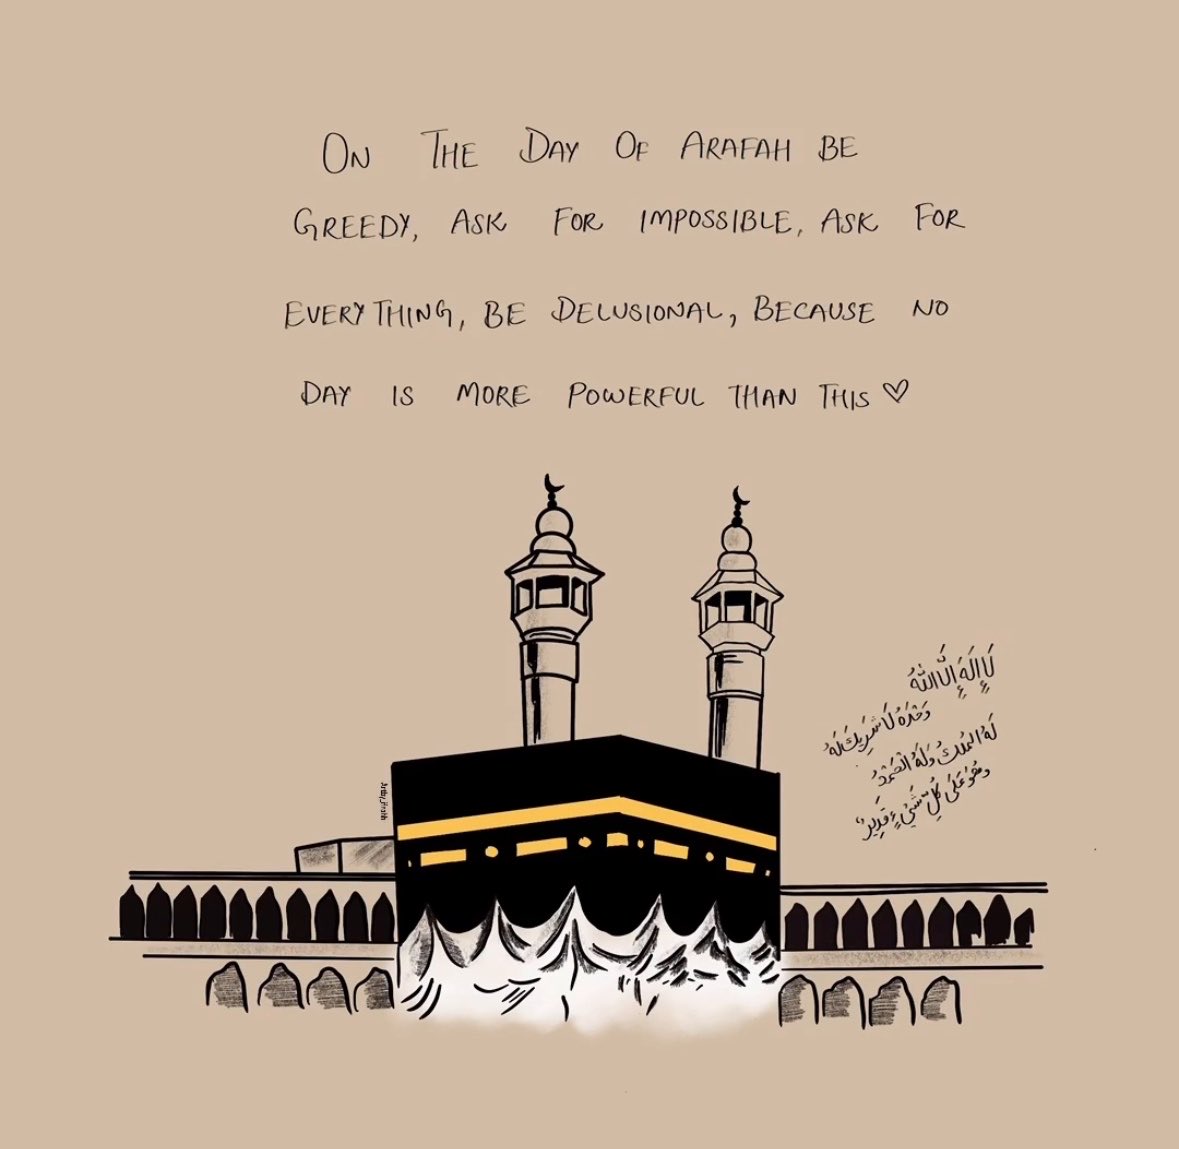 ON THE DAY OF ARAFAH BE
GREEDY, ASK FOR IMPOSSIBLE, ASK FOR
EVERYTHING, BE DELUSIONAL, BECAUSE NO
DAY IS MORE POWERFUL THAN THIS ♡
لَا إِلَهَ إِلَّا اللهُ
وَحْدَهُ لَا شَرِيكَ لَهُ
لَهُ المُلْكُ وَلَهُ الْحَمْدُ
وَهُوَ عَلَى كُلِّ شَيْءٍ قَدِيرٌ